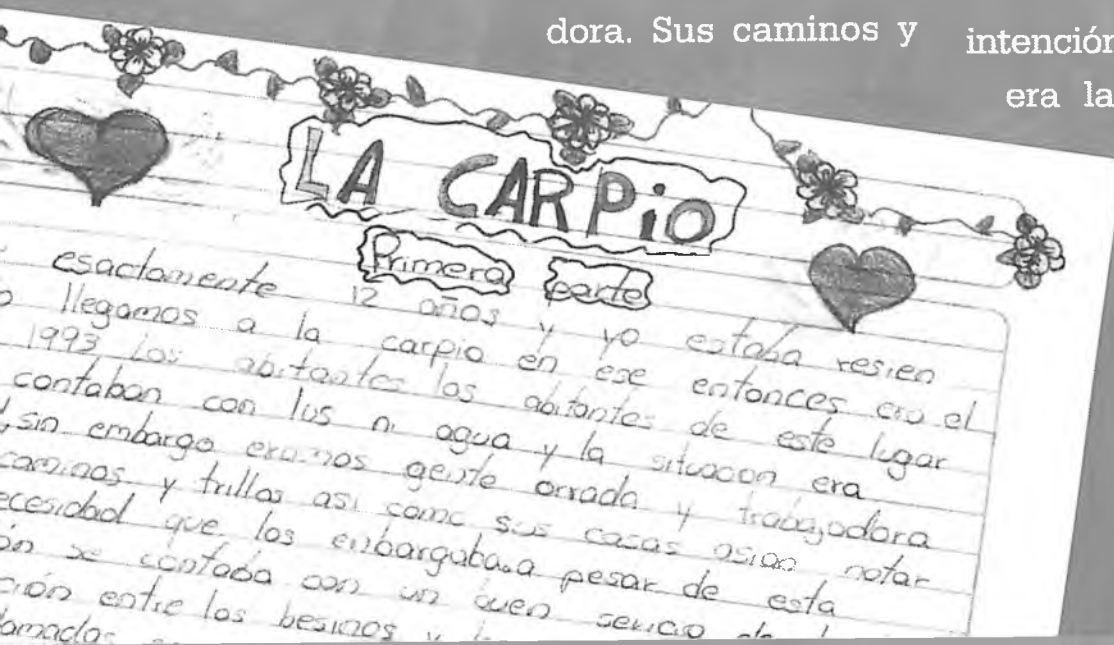 dora. Sus caminos y
intención
era la
LA CARPiO
Primera parte
esactamente 12 años y yo estaba resien
llegamos a la carpio en ese entonces era el
1993 los abitantes los abitantes de este lugar
contaban con lus ni agua y la situacon era
sin embargo eramos gente orrada y trabajadora
caminos y trillos asi como sus casas asian notar
ecesidad que los enbargaba.a pesar de esta
ón se contaba con un buen servicio
ción entre los besinos y
lamados